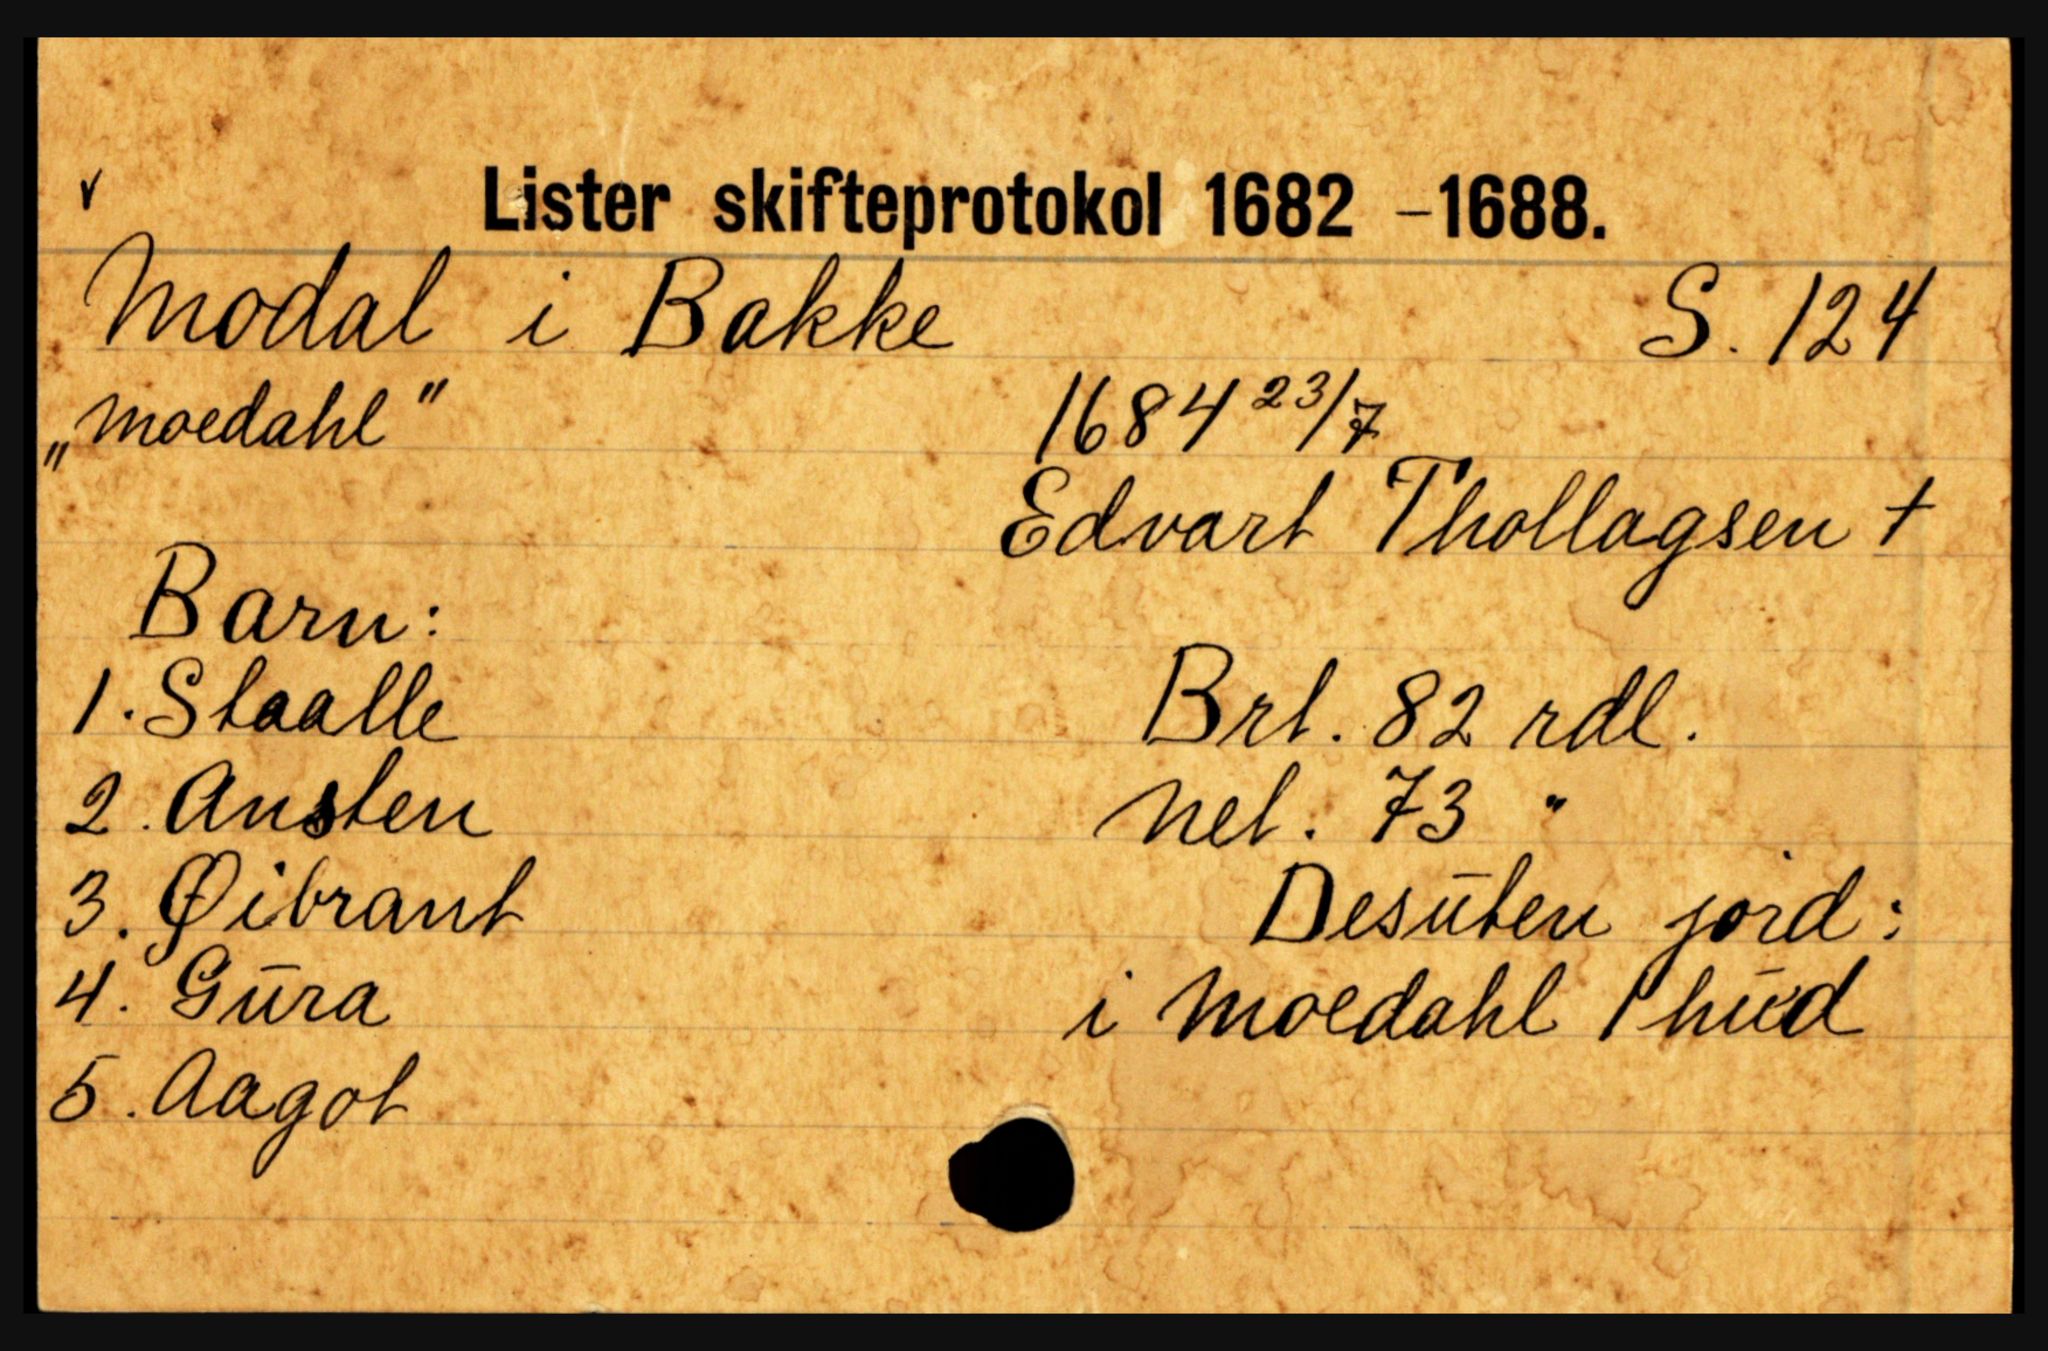 v
Lister skifteprotokol 1682 – 1688.
Modal i Bakke S. 124
„Moedahl" 1684 23/7
Edvart Thollagsen +
Barn:
1. Staalle Brt. 82 rdl.
2. Ansten Net. 73 "
3. Øibrant Desūten jord:
4. Gūra i Moedahl 1 hūd
5. Aagot